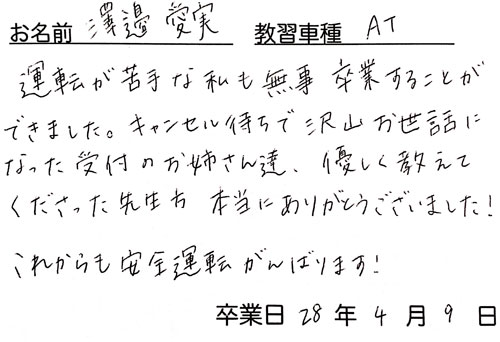 お名前 澤邉 愛実 教習車種 AT
運転が苦手な私も無事 卒業することが
できました。キャンセル待ちで沢山お世話に
なった受付のお姉さん達、優しく教えて
くださった先生方 本当にありがとうございました!
これからも安全運転がんばります!
卒業日 28 年 4 月 9 日